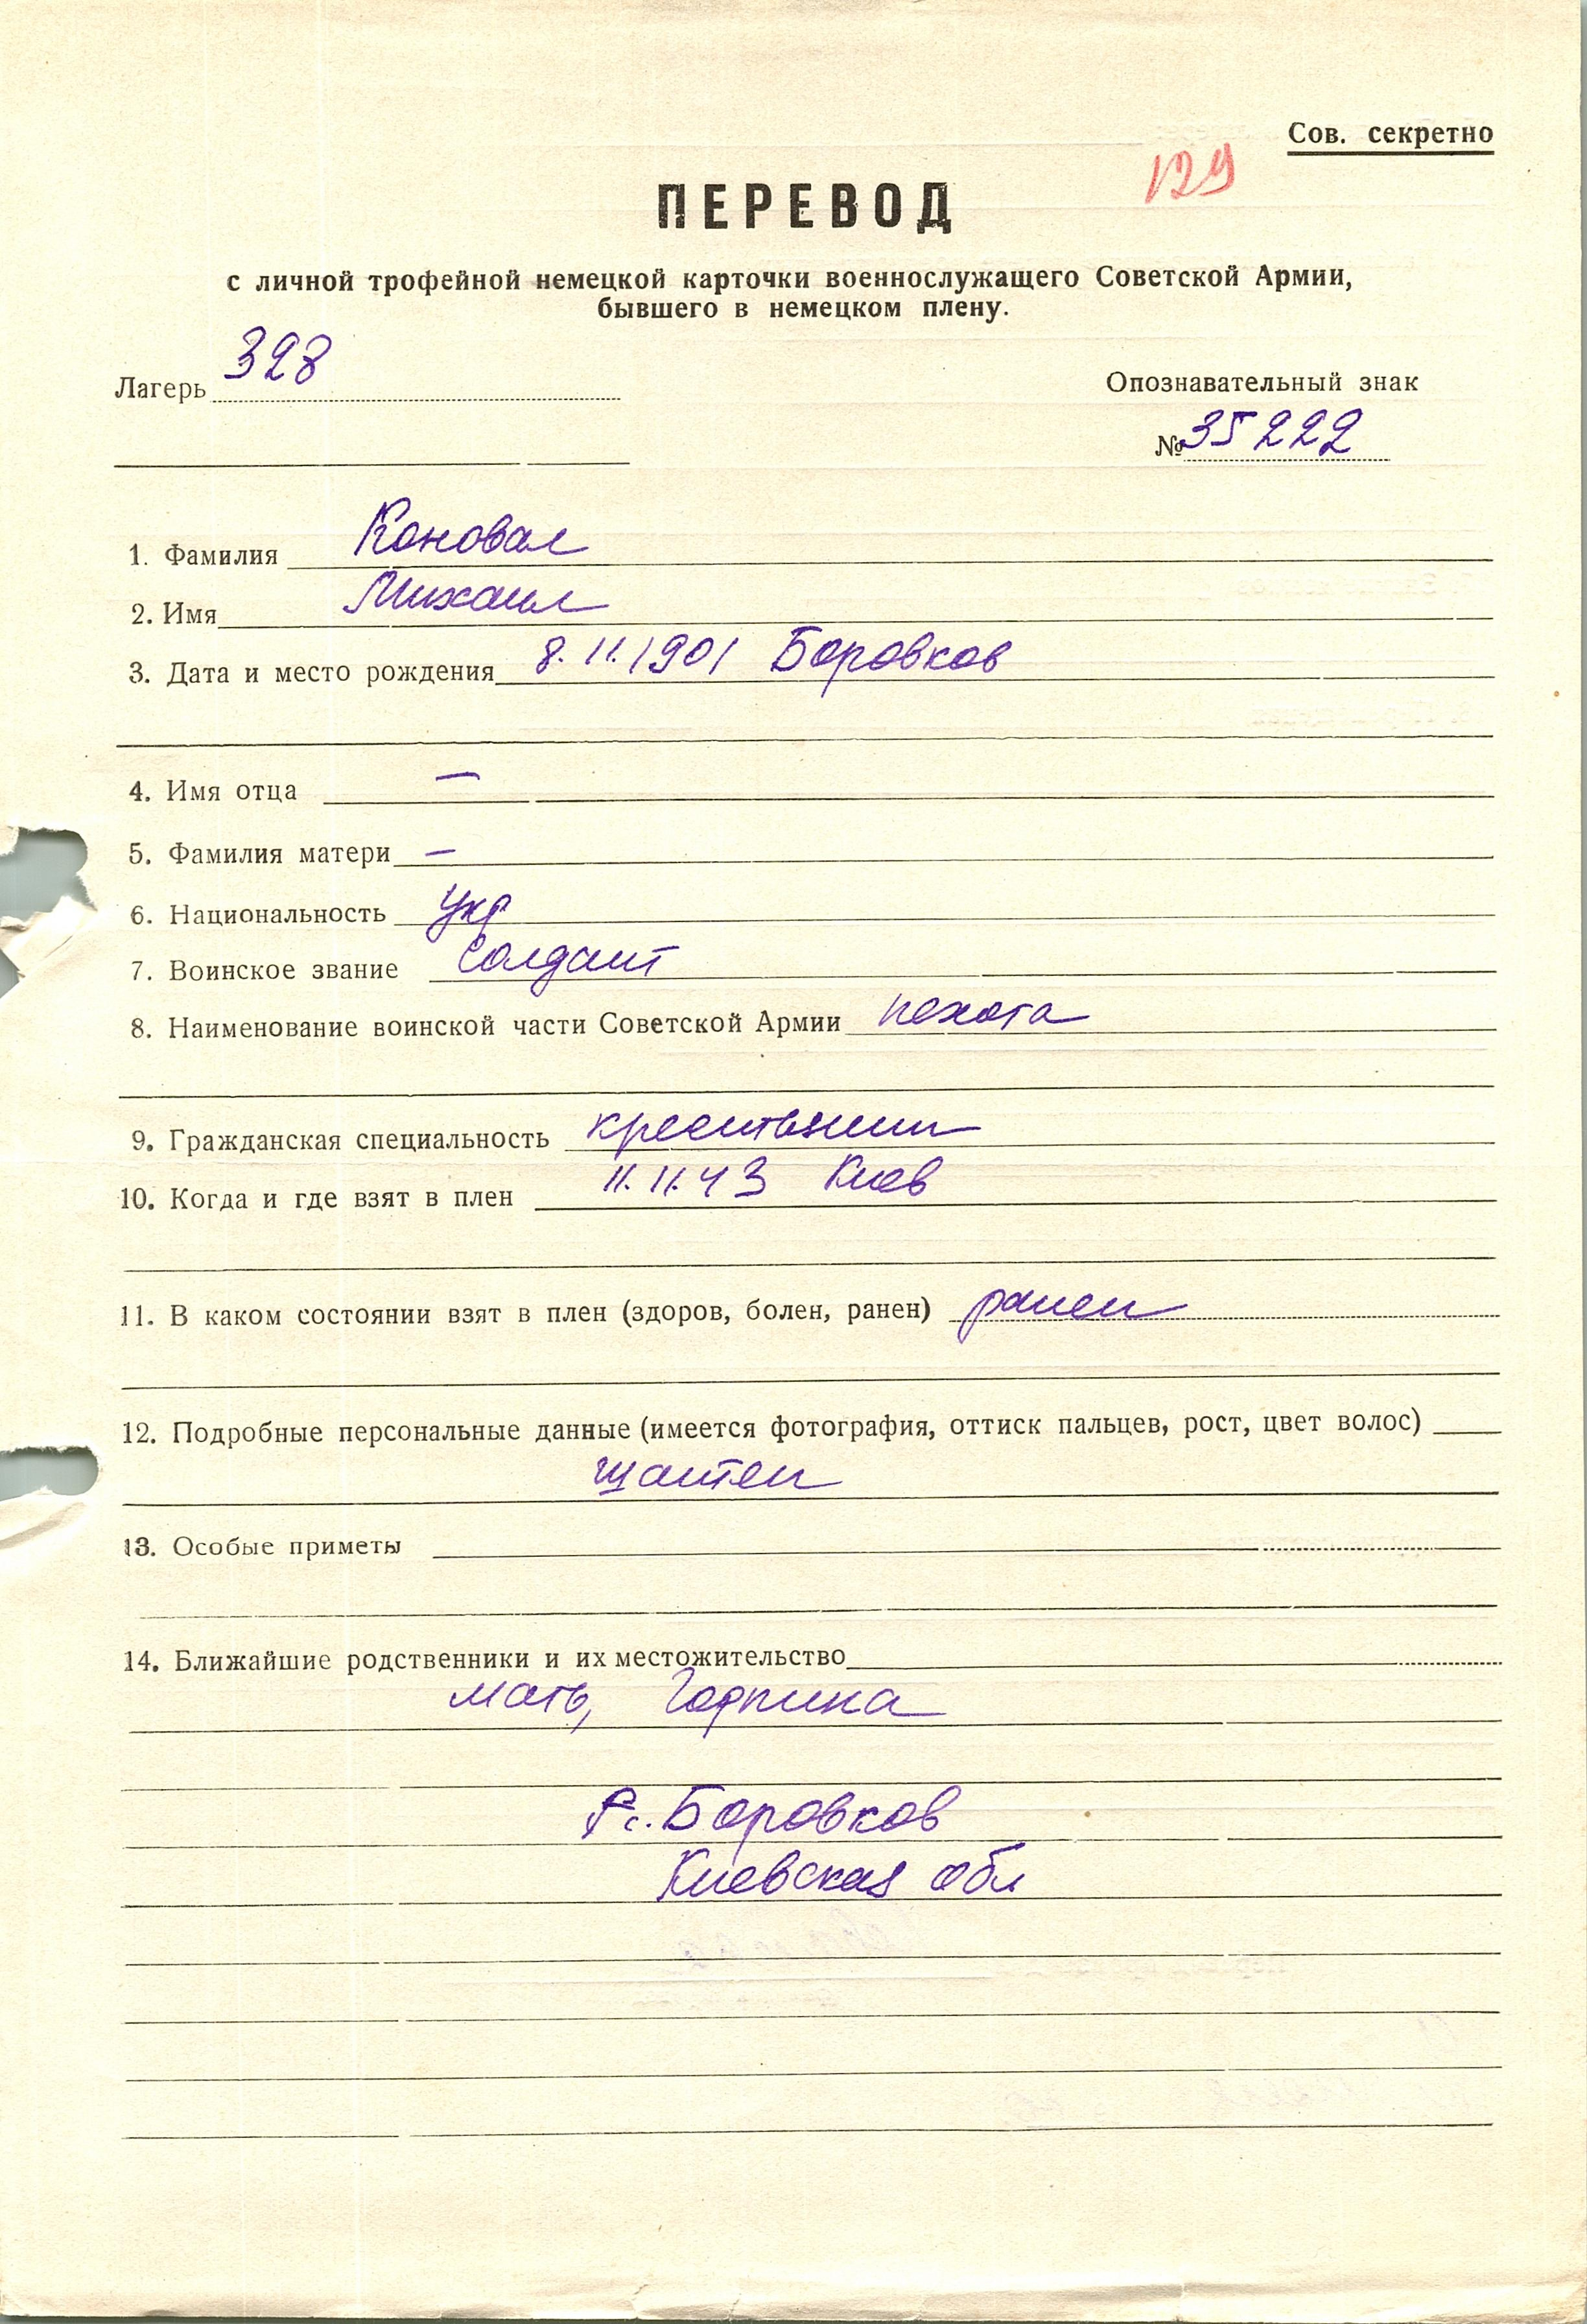 Сов. секретно
129
ПЕРЕВОД
с личной трофейной немецкой карточки военнослужащего Советской Армии,
бывшего в немецком плену.
Лагерь 328
Опознавательный знак
№ 35222
1. Фамилия Коновал
2. Имя Михаил
3. Дата и место рождения 8.11.1901 Боровков
4. Имя отца —
5. Фамилия матери —
6. Национальность укр
7. Воинское звание солдат
8. Наименование воинской части Советской Армии пехота
9. Гражданская специальность крестьянин
10. Когда и где взят в плен 11.11.43 Киев
11. В каком состоянии взят в плен (здоров, болен, ранен) ранен
12. Подробные персональные данные (имеется фотография, оттиск пальцев, рост, цвет волос)
шатен
13. Особые приметы
14. Ближайшие родственники и их местожительство
мать, Горпина
Боровков
Киевская обл